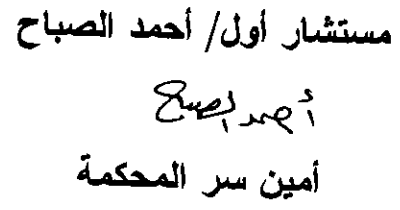 مستشار أول/ أحمد الصباح
أحمد الصباح
أمين سر المحكمة